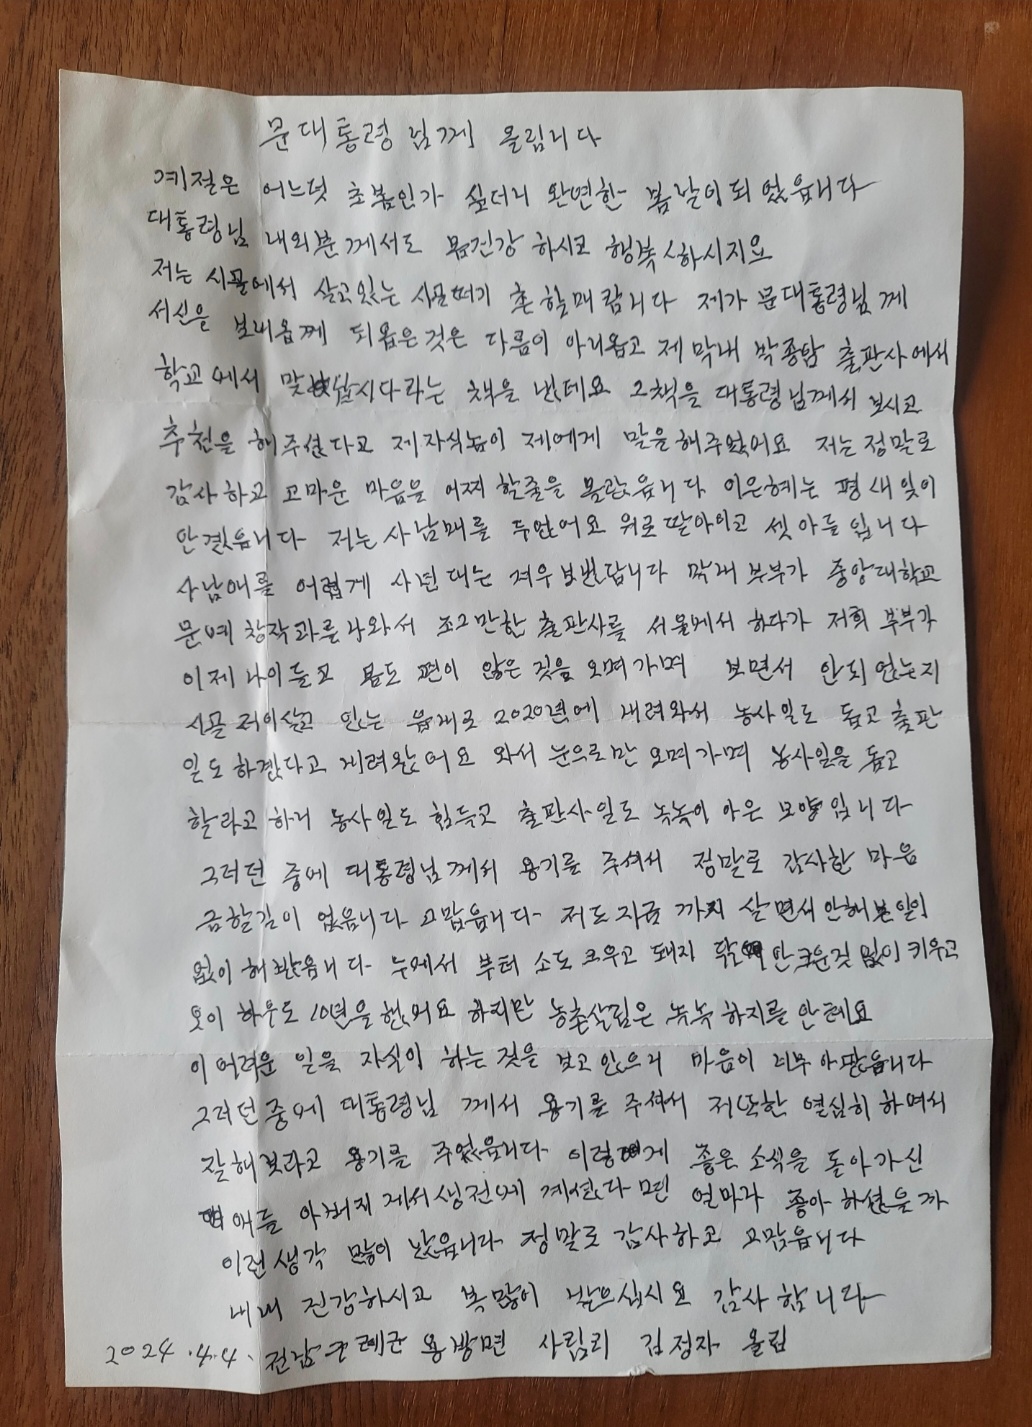 문대통령님께 올립니다
계절은 어느덧 초봄인가 싶더니 완연한 봄날이되 었읍니다
대통령님 내외분께서도 몸건강 하시고 행복 하시지요
저는 시골에서 살고있는 시골떠기 촌 할매 랍니다 제가 문대통령님께
서신을 보내옵께 되옵은것은 다름이 아니옵고 제 막내 박종팜 출판사에서
학교에서 맞 십시다라는 책을 냈데요 그책을 대통령님께서 보시고
추천을 해주셨다고 제자식놈이 제에게 말을해주었어요 저는 정말로
감사하고 고마운 마음을 어찌 할줄을 몰랐읍니다 이은혜는 평생잊이
안겠읍니다 저는 사남매를 두었어요 위로 딸아이고 셋 아들 입니다
사남애를 어렵게 사년대는 겨우 보냈답니다 막내 부부가 중앙대학교
문예 창작과를 나와서 조그만한 출판사를 서울에서 하다가 저희 부부가
이제 나이들고 몸도 편이 않은 것을 오며가며 보면서 안되었는지
시골 저이살고 있는 읍내로 2020년에 내려와서 농사일도 돕고 출판
일도 하겠다고 내려왔어요 와서 눈으로만 오며가며 농사일을 돕고
할라고 하니 농사일도 힘들고 출판사일도 녹녹이 아은 모양입니다
그러던 중에 대통령님께서 용기를 주셔서 정말로 감사한 마음
금할길이 없읍니다 고맙읍니다 저도 지금 까지 살면서 안해본일이
없이 해봤읍니다 누에서 부터 소도 키우고 돼지 닭 안키운것 없이 키우고
오이 하우도 10년을 했어요 하지만 농촌살림은 녹녹 하지를 안해요
이 어려운 일을 자식이 하는 것을 보고 있으니 마음이 너무 아팠읍니다
그러던 중에 대통령님 께서 용기를 주셔서 저또한 열심히 하며서
잘해보라고 용기를 주었읍니다 이렇게 좋은 소식을 돌아가신
애들 아버지 께서 생전에 계셨다면 얼마나 좋아 하셨을까
이런생각 많이 났읍니다 정말로 감사하고 고맙읍니다
내내 건강하시고 복많이 받으십시요 감사 합니다
2024.4.4. 전남 구례군 용방면 사림리 김정자 올림